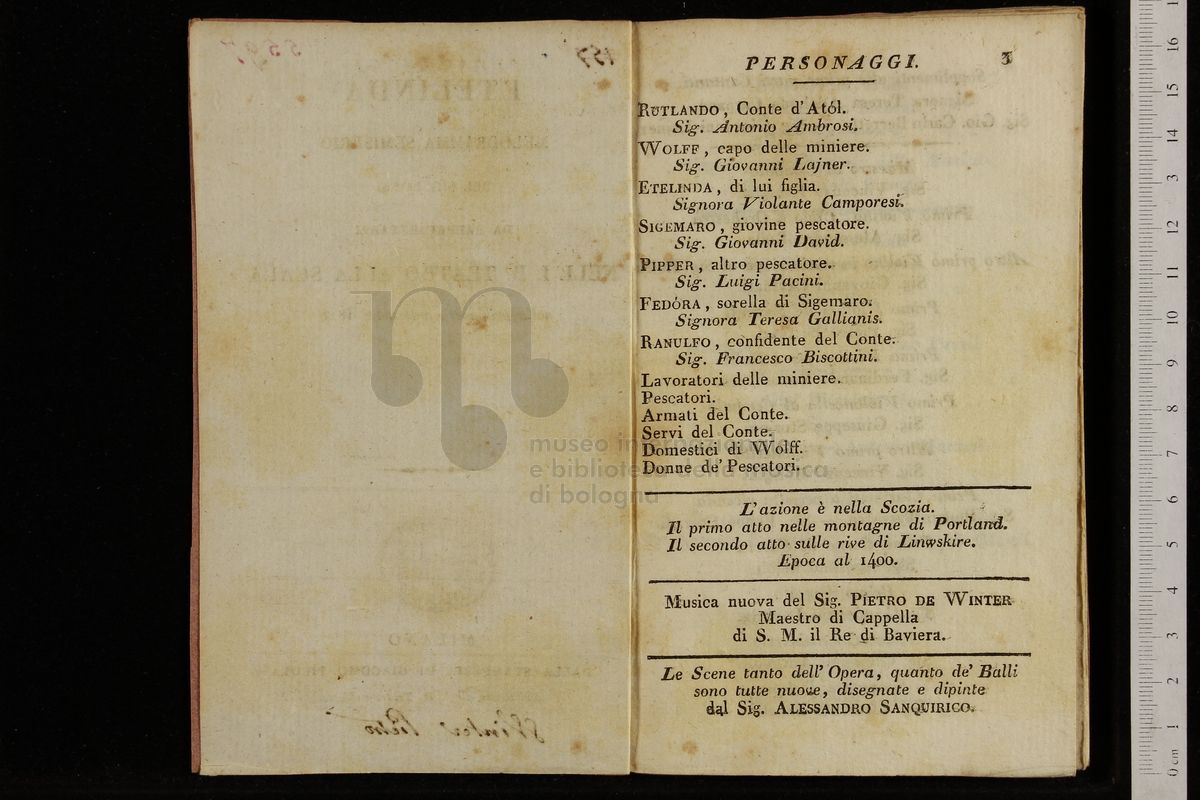 PERSONAGGI. 3
RUTLANDO, Conte d'Atól.
Sig. Antonio Ambrosi.
WOLFF, capo delle miniere.
Sig. Giovanni Lajner.
ETELINDA, di lui figlia.
Signora Violante Camporesi.
SIGEMARO, giovine pescatore.
Sig. Giovanni David.
PIPPER, altro pescatore.
Sig. Luigi Pacini.
FEDÓRA, sorella di Sigemaro.
Signora Teresa Gallianis.
RANULFO, confidente del Conte.
Sig. Francesco Biscottini.
Lavoratori delle miniere.
Pescatori.
Armati del Conte.
Servi del Conte.
Domestici di Wolff.
Donne de' Pescatori.
L'azione è nella Scozia.
Il primo atto nelle montagne di Portland.
Il secondo atto sulle rive di Linwskire.
Epoca al 1400.
Musica nuova del Sig. PIETRO DE WINTER
Maestro di Cappella
di S. M. il Re di Baviera.
Le Scene tanto dell' Opera, quanto de' Balli
sono tutte nuove, disegnate e dipinte
dal Sig. ALESSANDRO SANQUIRICO.
museo internazionale
e biblioteca della musica
di bologna
157
5597
ETELINDA
Winter Pietro
0 cm 1 2 3 4 5 6 7 8 9 10 11 12 13 14 15 16